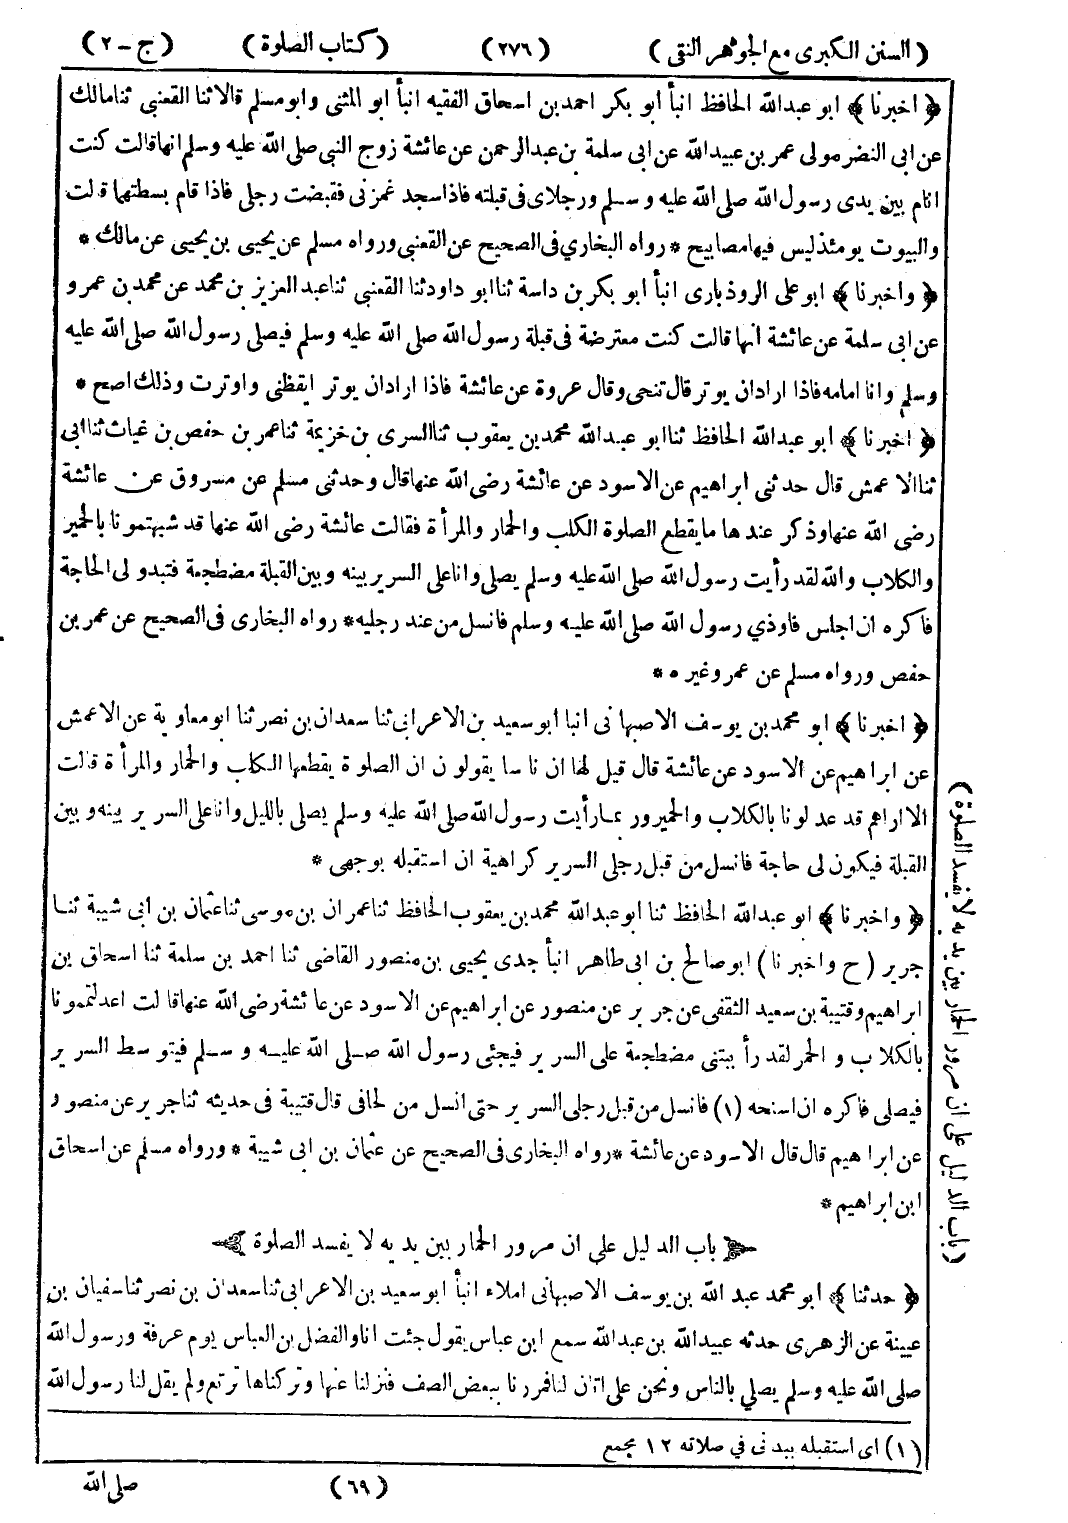 ( السنن الكبرى مع الجوهر النقى ) (٢٧٦) ( كتاب الصلوة ) ( ج - ٢ )
﴿ اخبرنا ﴾ ابو عبدالله الحافظ انبأ ابو بكر احمد بن اسحاق الفقيه انبأ ابو المثنى وابو مسلم قالا ثنا القعنبي ثنا مالك
عن ابى النضر مولى عمر بن عبيدالله عن ابى سلمة بن عبدالرحمن عن عائشة زوج النبي صلى الله عليه وسلم انها قالت كنت
انام بين يدى رسول الله صلى الله عليه وسلم ورجلاى فى قبلته فاذا سجد غمزنى فقبضت رجلي فاذا قام بسطتهما قالت
والبيوت يومئذ ليس فيها مصابيح * رواه البخاري فى الصحيح عن القعنبى ورواه مسلم عن يحيى بن يحيى عن مالك *
﴿ واخبرنا ﴾ ابو على الروذبارى انبأ ابو بكر بن داسة ثنا ابو داود ثنا القعنبي ثنا عبد العزيز بن محمد عن محمد بن عمرو
عن ابى سلمة عن عائشة انها قالت كنت معترضة فى قبلة رسول الله صلى الله عليه وسلم فيصلى رسول الله صلى الله عليه
وسلم وانا امامه فاذا اراد ان يوتر قال تنحى وقال عروة عن عائشة فاذا اراد ان يوتر ايقظنى واوترت وذلك اصح *
﴿ اخبرنا ﴾ ابو عبدالله الحافظ ثنا ابو عبدالله محمد بن يعقوب ثنا السرى بن خزيمة ثنا عمر بن حفص بن غياث ثنا ابى
ثنا الاعمش قال حدثنى ابراهيم عن الاسود عن عائشة رضى الله عنها قال وحدثنى مسلم عن مسروق عن عائشة
رضى الله عنها وذكر عندها ما يقطع الصلوة الكلب والحمار والمرأة فقالت عائشة رضى الله عنها قد شبهتمونا بالحمير
والكلاب والله لقد رأيت رسول الله صلى الله عليه وسلم يصلى وانا على السرير بينه وبين القبلة مضطجعة فتبدو لى الحاجة
فاكره ان اجلس فاوذي رسول الله صلى الله عليه وسلم فانسل من عند رجليه * رواه البخارى فى الصحيح عن عمر بن
حفص ورواه مسلم عن عمر وغيره *
﴿ اخبرنا ﴾ ابو محمد بن يوسف الاصبهانى انبا ابو سعيد بن الاعرابى ثنا سعدان بن نصر ثنا ابو معاوية عن الاعمش
عن ابراهيم عن الاسود عن عائشة قال قيل لها ان ناسا يقولون ان الصلوة يقطعها الكلب والحمار والمرأة قالت
الا اراهم قد عدلونا بالكلاب والحمير وربما رأيت رسول الله صلى الله عليه وسلم يصلى بالليل وانا على السرير بينه وبين
القبلة فيكون لى حاجة فانسل من قبل رجلى السرير كراهية ان استقبله بوجهى *
﴿ واخبرنا ﴾ ابو عبدالله الحافظ ثنا ابو عبدالله محمد بن يعقوب الحافظ ثنا عمران بن موسى ثنا عثمان بن ابى شيبة ثنا
جرير ( ح واخبرنا ) ابو صالح بن ابى طاهر انبأ جدى يحيى بن منصور القاضى ثنا احمد بن سلمة ثنا اسحاق بن
ابراهيم وقتيبة بن سعيد الثقفى عن جرير عن منصور عن ابراهيم عن الاسود عن عائشة رضى الله عنها قالت اعدلتمونا
بالكلاب والحمر لقد رأيتنى مضطجعة على السرير فيجئى رسول الله صلى الله عليه وسلم فيتوسط السرير
فيصلى فاكره ان اسنحه (١) فانسل من قبل رجلى السرير حتى انسل من لحافى قال قتيبة فى حديثه ثنا جرير عن منصور
عن ابراهيم قال قال الاسود عن عائشة * رواه البخارى فى الصحيح عن عثمان بن ابى شيبة * ورواه مسلم عن اسحاق
ابن ابراهيم *
باب الدليل على ان مرور الحمار بين يديه لا يفسد الصلوة
﴿ حدثنا ﴾ ابو محمد عبد الله بن يوسف الاصبهانى املاء انبأ ابو سعيد بن الاعرابى ثنا سعدان بن نصر ثنا سفيان بن
عيينة عن الزهرى حدثه عبيدالله بن عبدالله سمع ابن عباس يقول جئت انا والفضل بن العباس يوم عرفة ورسول الله
صلى الله عليه وسلم يصلي بالناس ونحن على اتان لنا فمررنا ببعض الصف فنزلنا عنها وتركناها ترتع ولم يقل لنا رسول الله
(١) اى استقبله ببدنى في صلاته ١٢ مجمع
(٦٩) صلى الله
( باب الدليل على ان مرور الحمار بين يديه لا يفسد الصلوة )